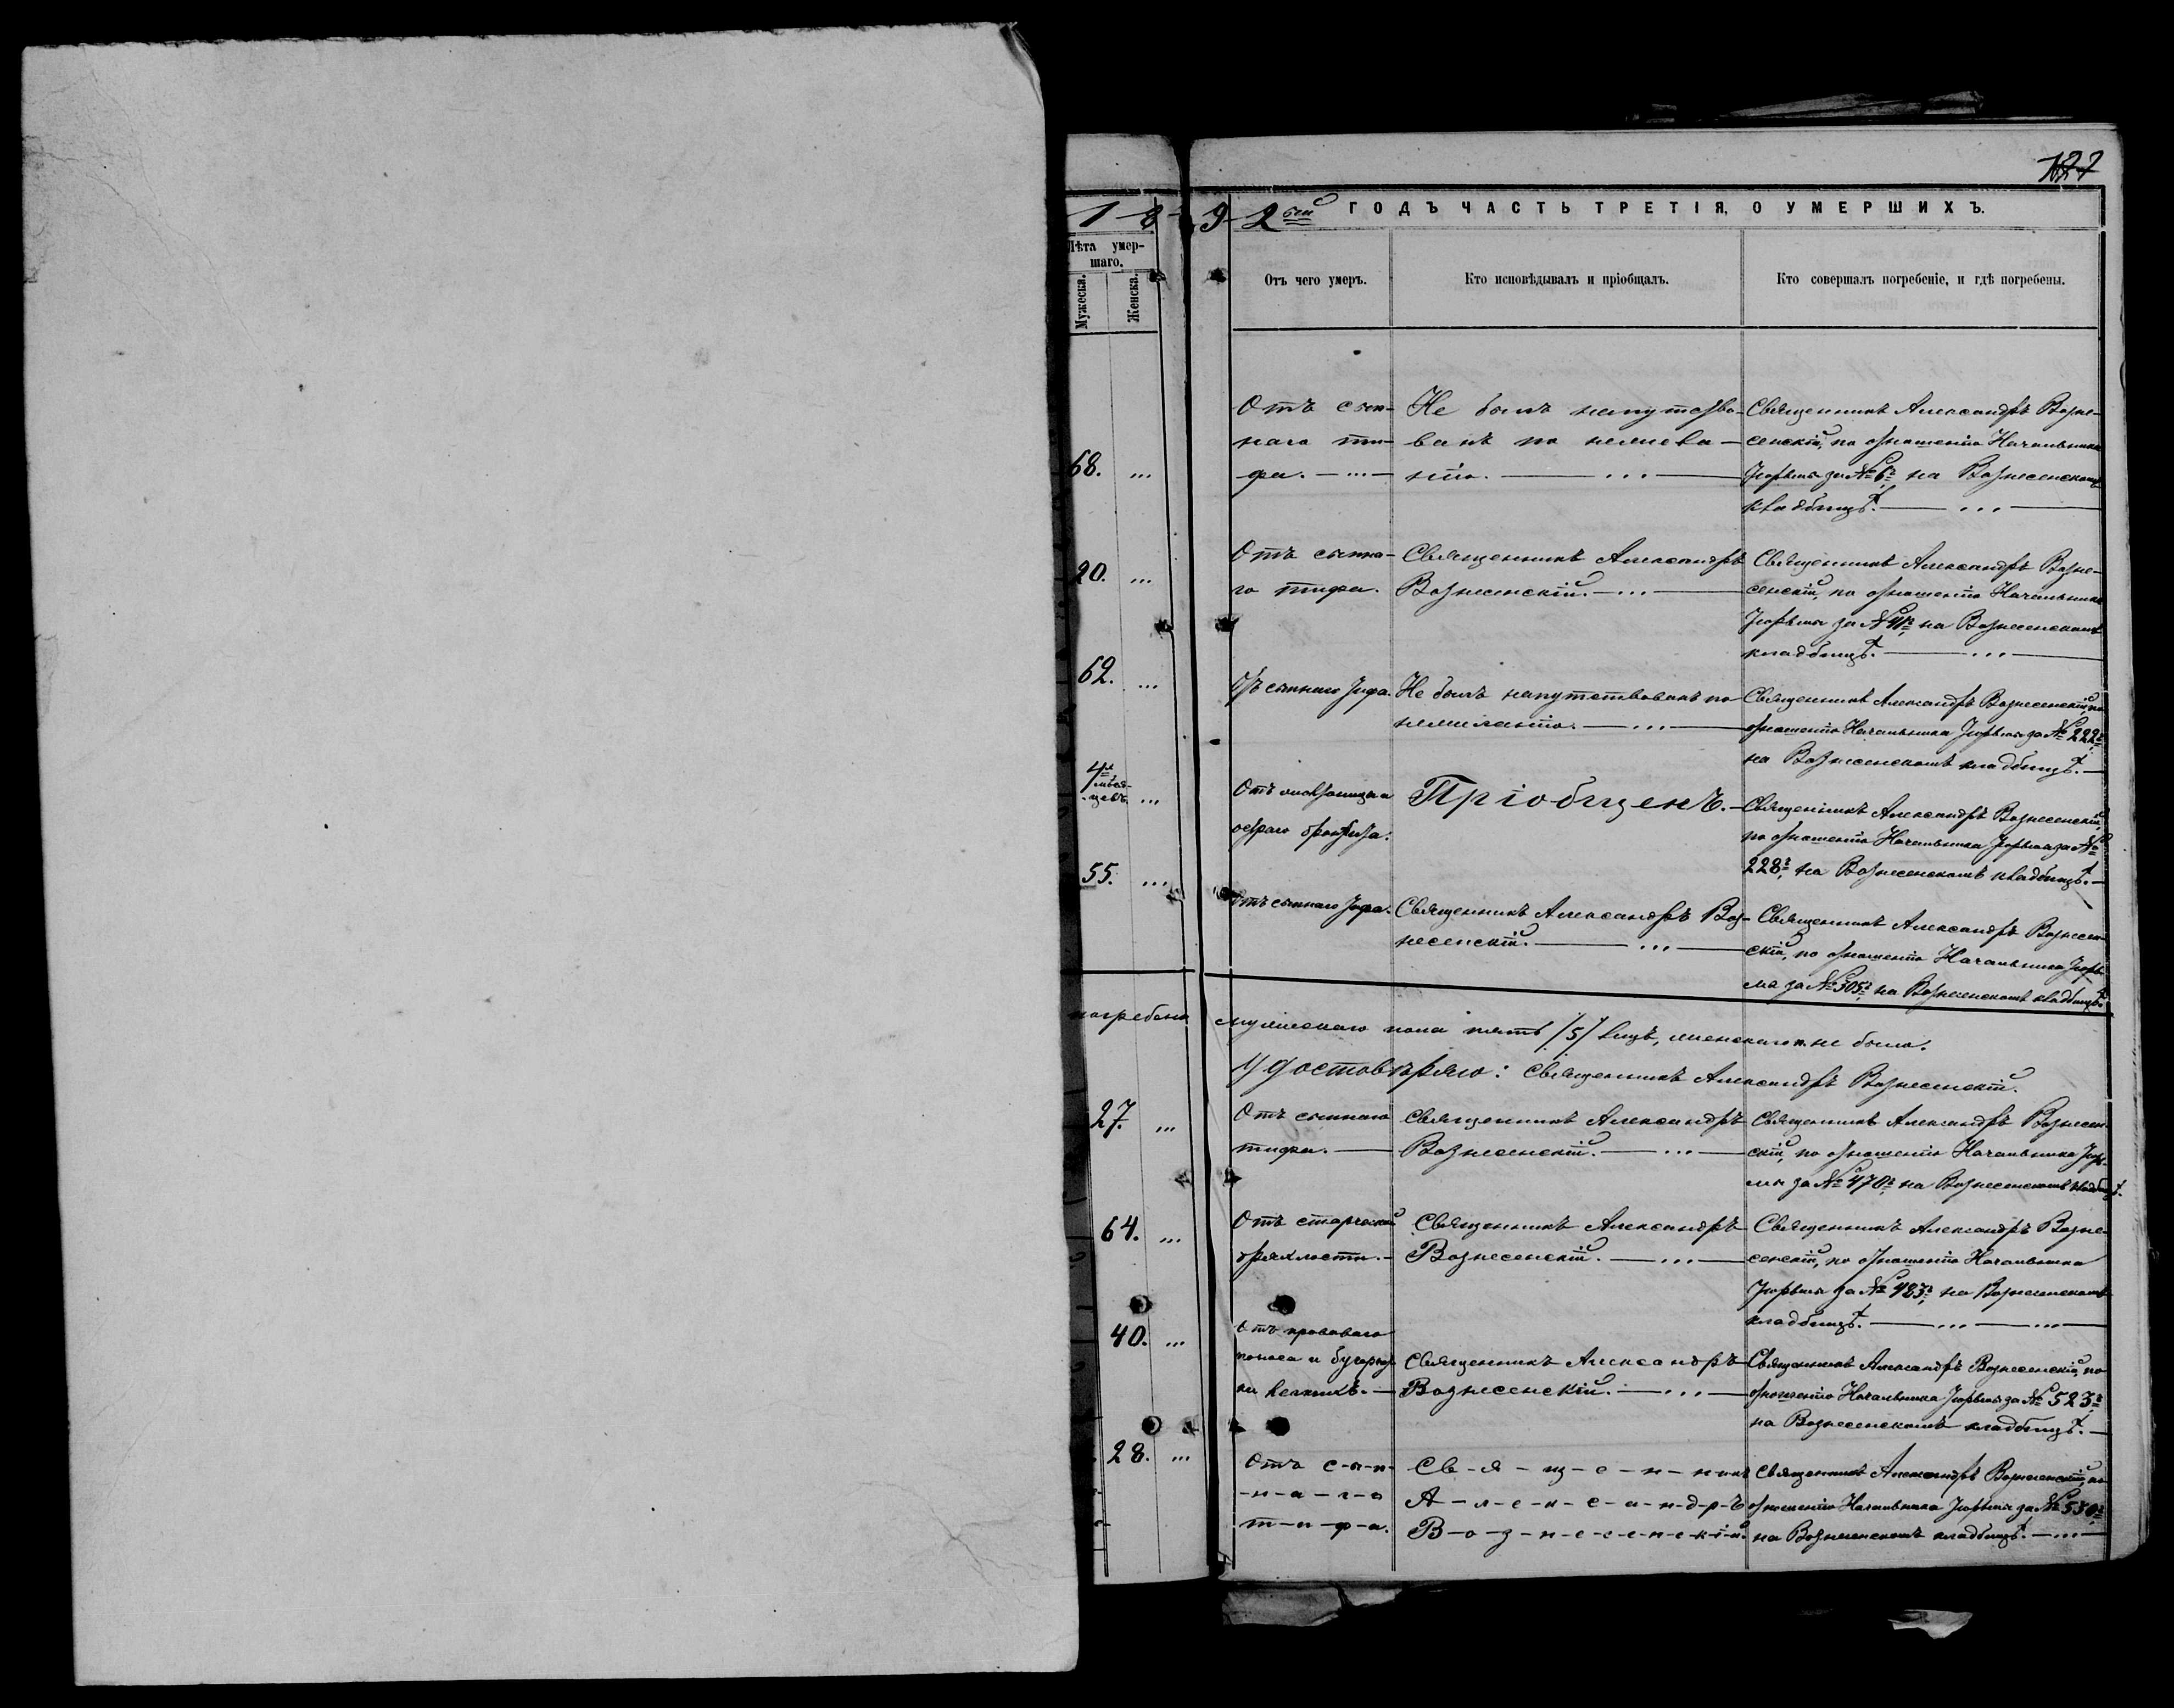 127
1 8 9 2ой ГОДЪ ЧАСТЬ ТРЕТІЯ, О УМЕРШИХЪ.
Лѣта умер-
шаго.
Мужеска.
Женска.
Отъ чего умеръ.
Кто исповѣдывалъ и пріобщалъ.
Кто совершалъ погребеніе, и гдѣ погребены.
68. ...
Отъ сып-
наго ти-
фа. — ... —
Не былъ напутство-
ванъ по нежела-
нію. — ... —
Священникъ Александръ Возне-
сенскій, по отношенію Начальника
Тюрьмы за № 6, на Вознесенскомъ
кладбищѣ. — ... —
20. ...
Отъ сыпна-
го тифа.
Священникъ Александръ
Вознесенскій. — ... —
Священникъ Александръ Возне-
сенскій, по отношенію Начальника
Тюрьмы за № 41, на Вознесенскомъ
кладбищѣ. — ... —
62. ...
Отъ сыпнаго тифа.
Не былъ напутствованъ по
нежеланію. — ... —
Священникъ Александръ Вознесенскій, по
отношенію Начальника Тюрьмы за № 222
на Вознесенскомъ кладбищѣ. —
4хъ
мѣся-
цевъ. ...
остраго бронхита.
Пріобщенъ. —
Священникъ Александръ Вознесенскій,
по отношенію Начальника Тюрьмы за №
228, на Вознесенскомъ кладбищѣ. —
55. ...
Отъ сыпнаго тифа.
Священникъ Александръ Воз-
несенскій. — ... —
Священникъ Александръ Вознесен-
скій, по отношенію Начальника Тюрь-
мы за № 305, на Вознесенскомъ кладбищѣ.
погребено мужескаго пола пять /5/ лицъ, женскаго п. не было.
Удостовѣряю: Священникъ Александръ Вознесенскій.
27. ...
Отъ сыпнаго
тифа. —
Священникъ Александръ
Вознесенскій. — ... —
Священникъ Александръ Вознесен-
скій, по отношенію Начальника Тюрь-
мы за № 470, на Вознесенскомъ кладбищѣ.
64. ...
Отъ старческой
дряхлости. —
Священникъ Александръ
Вознесенскій. — ... —
Священникъ Александръ Возне-
сенскій, по отношенію Начальника
Тюрьмы за № 483, на Вознесенскомъ
кладбищѣ. — ... — ... —
40. ...
Отъ кроваваго
поноса и бугорчат-
ки легкихъ. —
Священникъ Александръ
Вознесенскій. — ... —
Священникъ Александръ Вознесенскій, по
отношенію Начальника Тюрьмы за № 523
на Вознесенскомъ кладбищѣ. —
28. ...
Отъ с-ы-п-
-н-а-г-о
т-и-ф-а.
Св-я-щ-е-н-н-икъ
А-л-е-к-с-а-н-д-р-ъ
В-о-з-н-е-с-е-н-с-к-і-й.
Священникъ Александръ Вознесенскій, по
отношенію Начальника Тюрьмы за № 550
на Вознесенскомъ кладбищѣ. — ... —